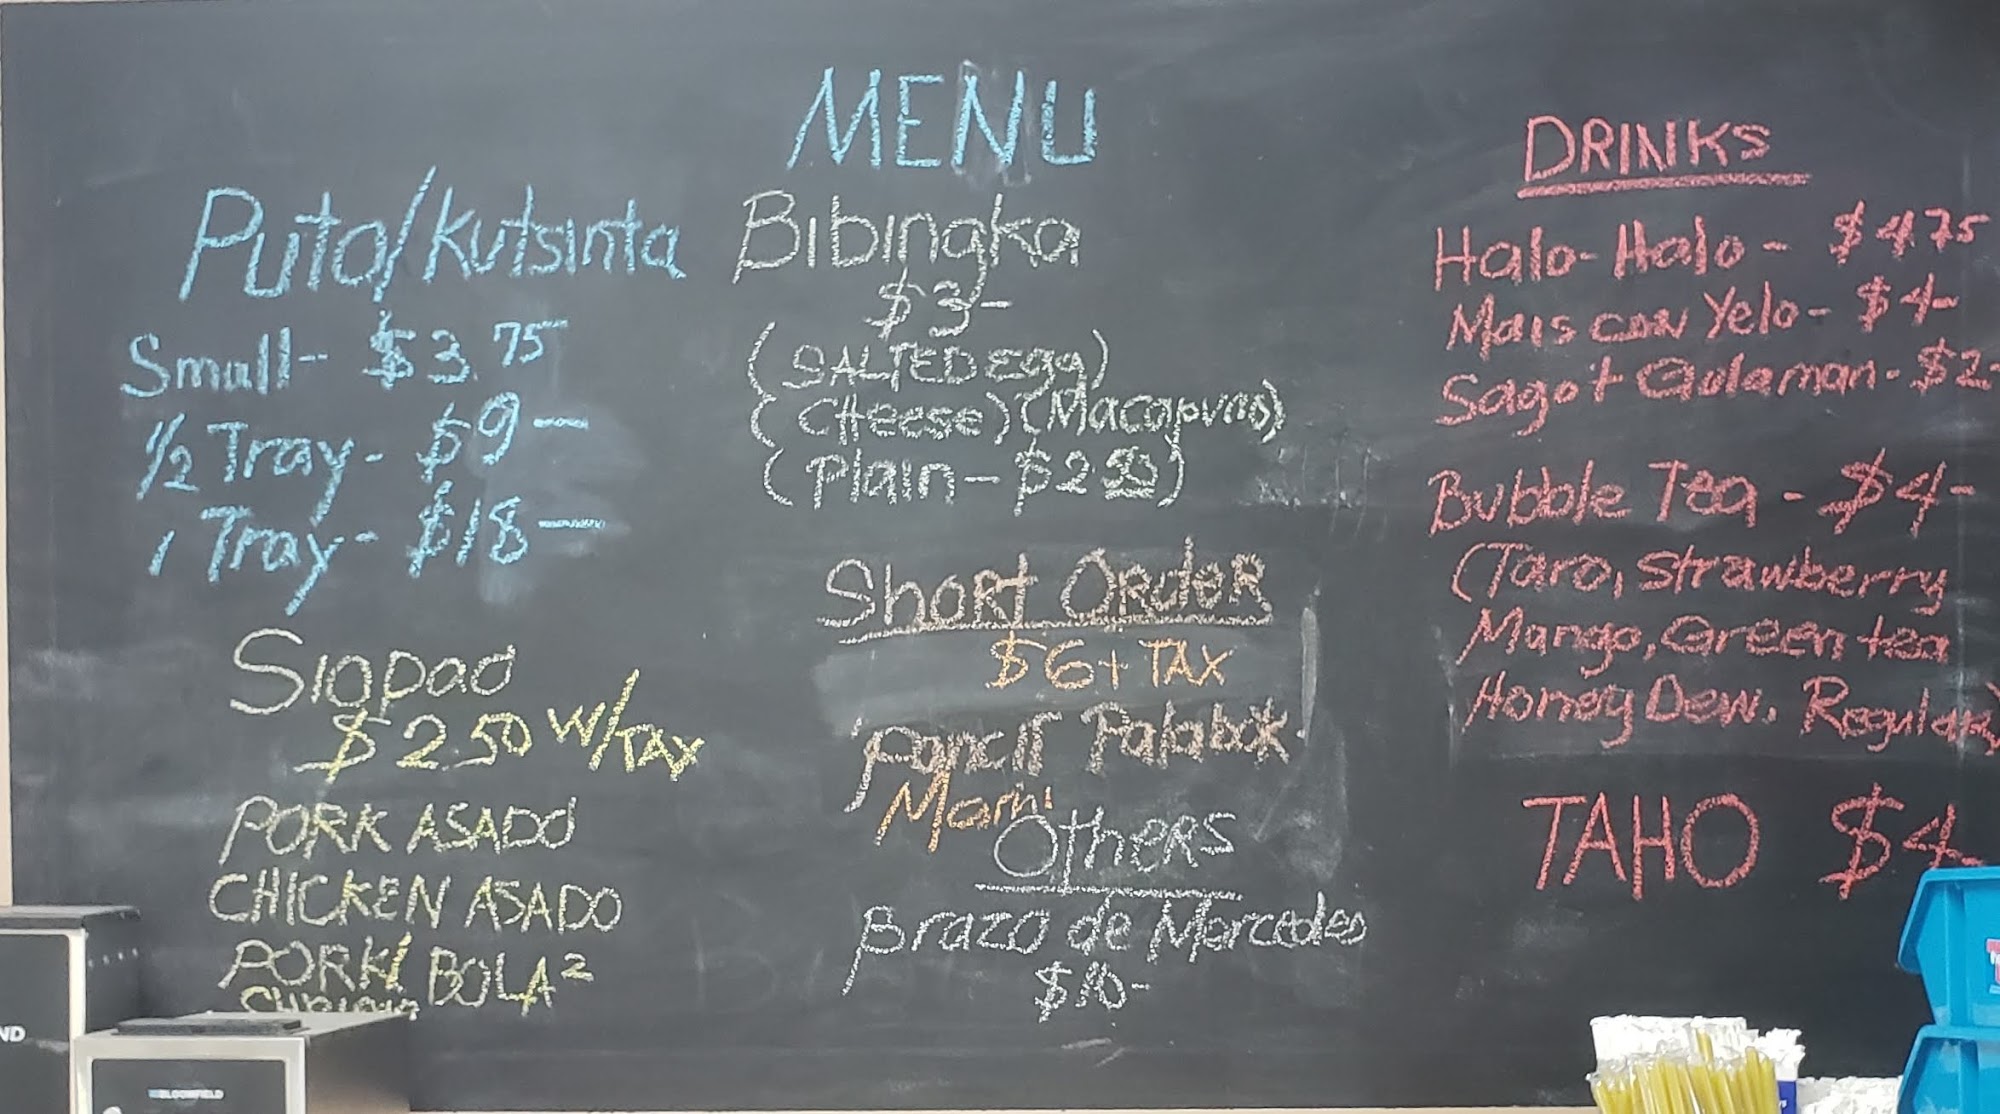 MENU
Puto/Kutsinta
Small- $3.75
1/2 Tray- $9-
1 Tray- $18-
Siopao
$2.50 W/TAX
PORK ASADO
CHICKEN ASADO
PORK/ BOLA²
Chicken
Bibingka
$3-
(SALTED Egg)
(Cheese) (Macapuno)
(Plain- $2.50)
Short Order
$6+ TAX
Pancit Palabok
Mami
Others
Brazo de Mercedes
$10-
DRINKS
Halo-Halo- $4.75
Mais con Yelo- $4-
Sago+Gulaman- $2-
Bubble Tea- $4-
(Taro, Strawberry
Mango, Green tea
Honey Dew, Regular)
TAHO $4-
ND
BLOOMFIELD